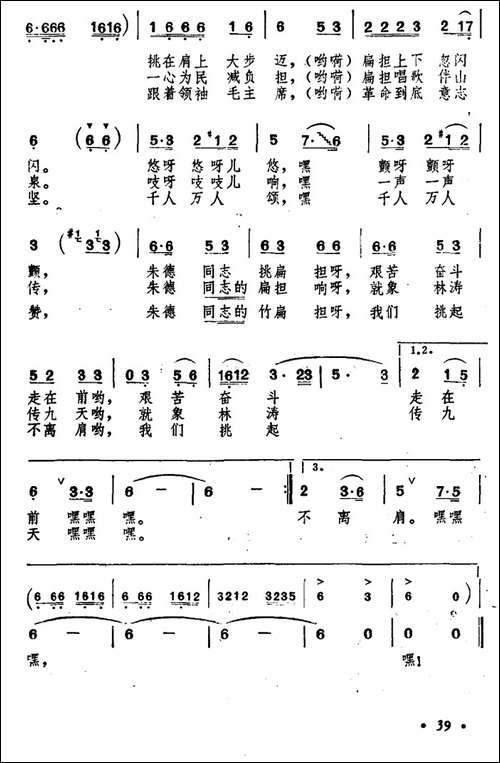 6·666 1616) | 1 6 6 6 | 6· 6 | 6 5 3 | 2 2 2 3 | 2 17 |
挑在肩上 大步 迈，(哟嗬) 扁担上下 忽闪
一心为民 减负 担，(哟嗬) 扁担唱歌 伴山
跟着领袖 毛主 席，(哟嗬) 革命到底 意志
6 (6 6) | 5·3 2 #1 2 | 5 7·6 | 5·3 2 #1 2 |
闪。 悠呀 悠呀儿 悠，嘿 颤呀 颤呀
泉。 吱呀 吱吱儿 响，嘿 一声 一声
坚。 千人 万人 颂，嘿 千人 万人
3 (#1 3 #1 3) | 6·6 5·3 | 6 3 2 2 | 6·6 5·3 |
颤， 朱德 同志 挑扁 担呀，艰苦 奋斗
传， 朱德 同志的 扁担 响呀，就象 林涛
赞， 朱德 同志的 竹扁 担呀，我们 挑起
1.2.
5 2 3 3 | 0 3 5 6 | 1612 3·23 | 5· 3 | 2 1 5 |
走在 前哟，艰苦 奋 斗 走在
传九 天哟，就象 林 涛 传九
不离 肩哟，我们 挑 起
3.
6 ∨ 3·3 | 6 — | 6 — :‖ 2 3·6 | 5 ∨ 7·5 |
前 嘿嘿 嘿。 不离 肩。嘿嘿
天 嘿嘿 嘿。
(6 66 1616 | 6 66 1612 | 3212 3235 | 6 3 | 6 0) |
6 — | 6 — | 6 — | 6 0 | 0 0 ‖
嘿， 嘿！
• 39 •